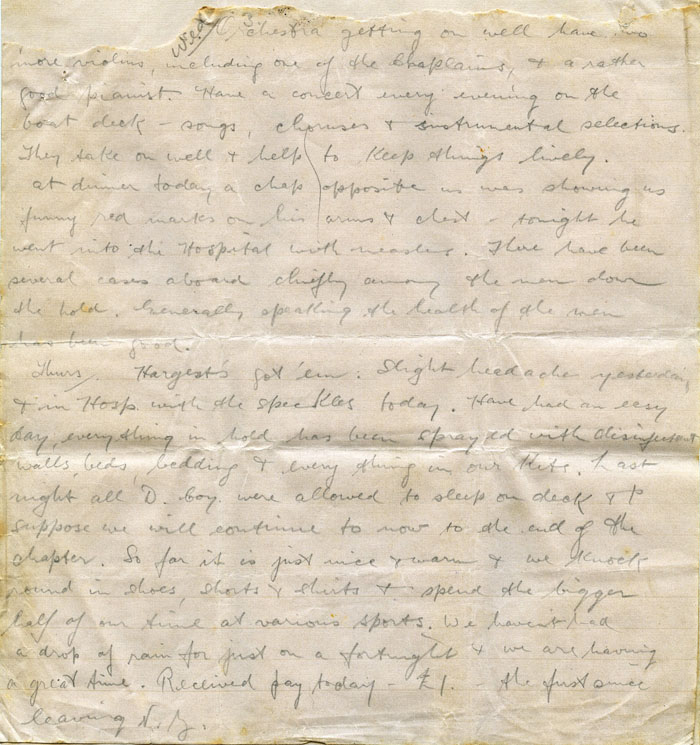 Wed 3. Orchestra getting on well have two
more violins, including one of the Chaplains, & a rather
good pianist. Have a concert every evening on the
boat deck - songs, choruses & instrumental selections.
They take on well & help to keep things lively.
At dinner today a chap opposite us was showing us
funny red marks on his arms & chest - tonight he
went into the Hospital with measles. There have been
several cases aboard chiefly among the men down
the hold. Generally speaking the health of the men
has been good.
Thurs. Hargest's got 'em. Slight headache yesterday
& in Hosp. with the speckles today. Have had an easy
day, everything in hold has been sprayed with disinfectant
walls, beds, bedding & every thing in our kits. Last
night all D. Coy. were allowed to sleep on deck & I
suppose we will continue to now to the end of the
chapter. So far it is just nice & warm & we knock
round in shoes, shorts & shirts & spend the bigger
half of our time at various sports. We haven't had
a drop of rain for just on a fortnight & we are having
a great time. Received pay today - £1. - the first since
leaving N.Z.